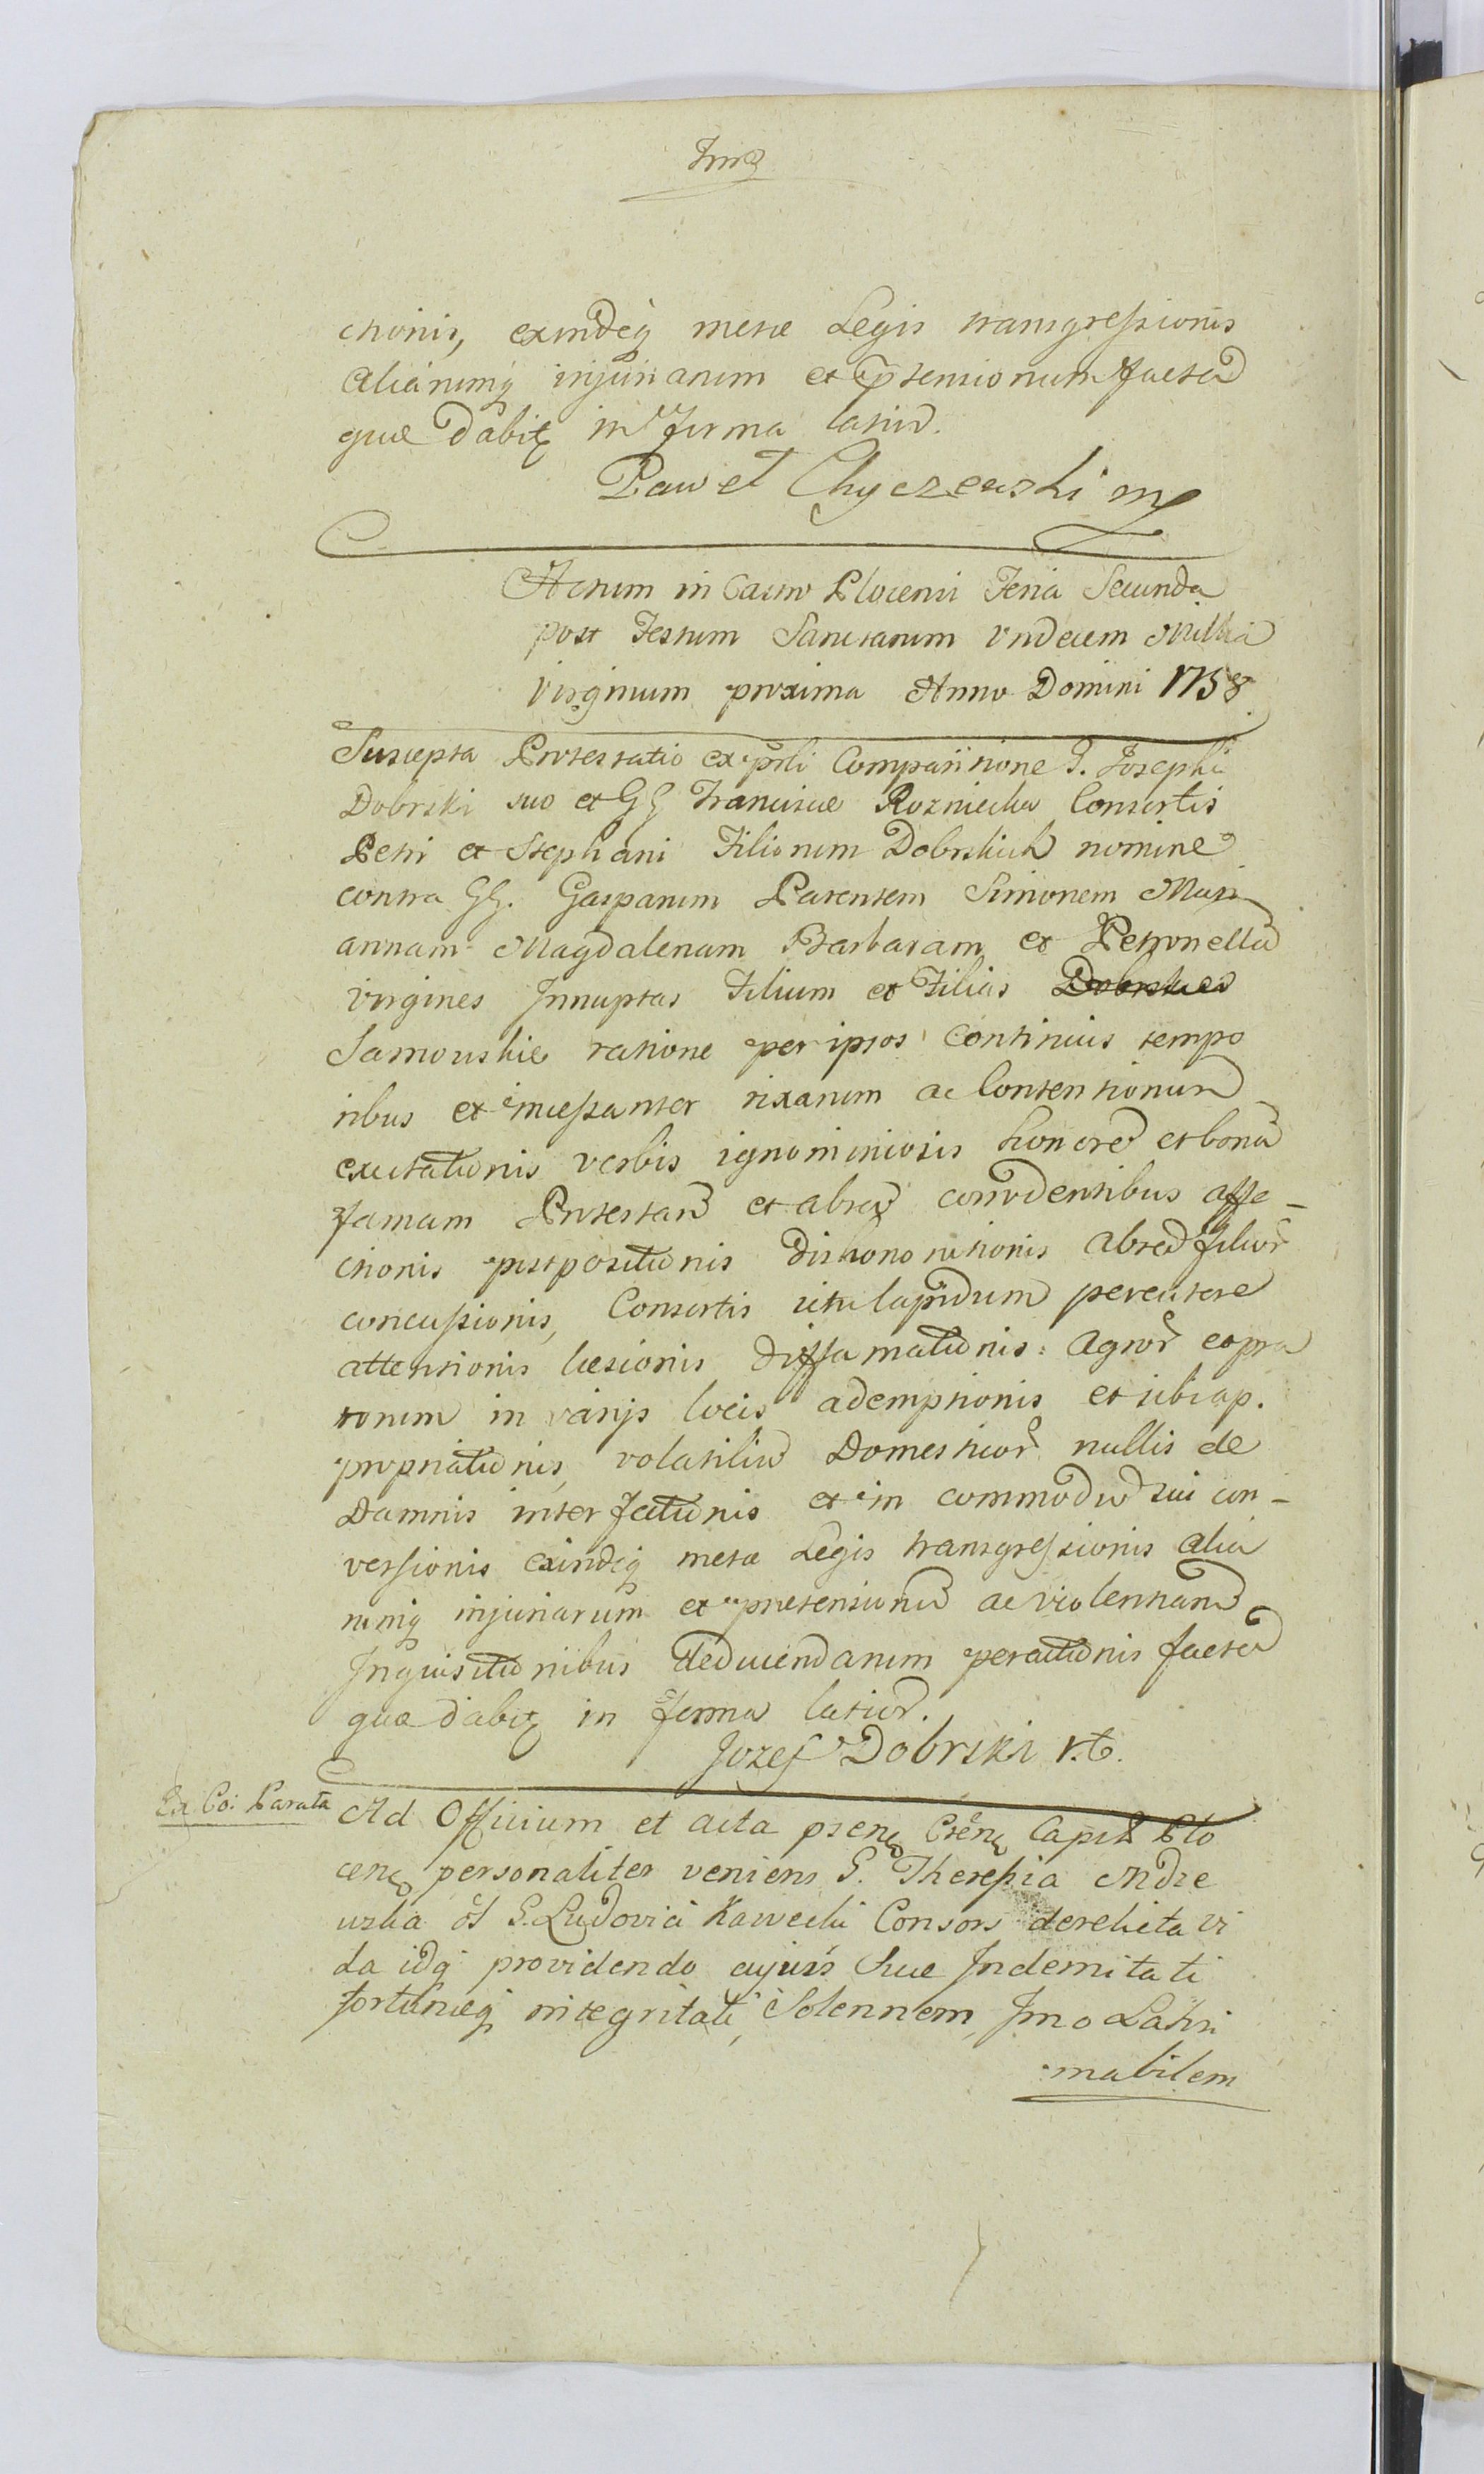 ctionis, exindeq meræ Legis transgressionis
Aliarumq injuriarum et prætensionum facta
quæ dabit in forma latiu.
Paweł Chyczewski mp
Actum in Castro Plocensi Feria Secunda
post Festum Sanctarum Undecem Millia
Virginum proxima Anno Domini 1758
Suscepta Protestatio ex psli Comparitione G. Josephi
Dobrski suo et GG Franciscæ Rozniecka Consortis
Petri et Stephani Filiorum Dobrskich nomine
contra GG. Gasparum Parentem Simonem Mari
annam Magdalenam Barbaram et Petronella
virgines Innuptas Filium et Filias Dobrskies
Sarnowskie ratione per ipsos continuis tempo
ribus et incessanter rixarum ac Contentionum
excitationis verbis ignominiosis honore et bona
famam Protestan et abseq considentibus affe-
ctionis postpositionis dishonoritionis abseq filior
concussionis, Consortis ictu lapidum percutere
attentionis læsionis diffamationis: Agror et pra
torum in varijs locis ademptionis et sibi ap.
propriationis, volatiliu Domesticor nullis de
Damnis interfectionis et in commodu sui con-
versionis exindeq meræ Legis transgressionis alia
rumq injuriarum et prætensionu ac violentiaru
Inquisitionibus deducendarum peractionis facta
quæ dabit in forma latior.
Jozef Dobrski r.t.
Ex Co: Parata
Ad Officium et acta psen Csen Capit Plo
cen personaliter veniens G. Theressia Andre
wska ol G. Ludovici Kawecki Consors derelicta vi
da idq providendo cujuis suæ Indemitati
fortunæq integritati, Solennem, Imo Lahri
mabilem